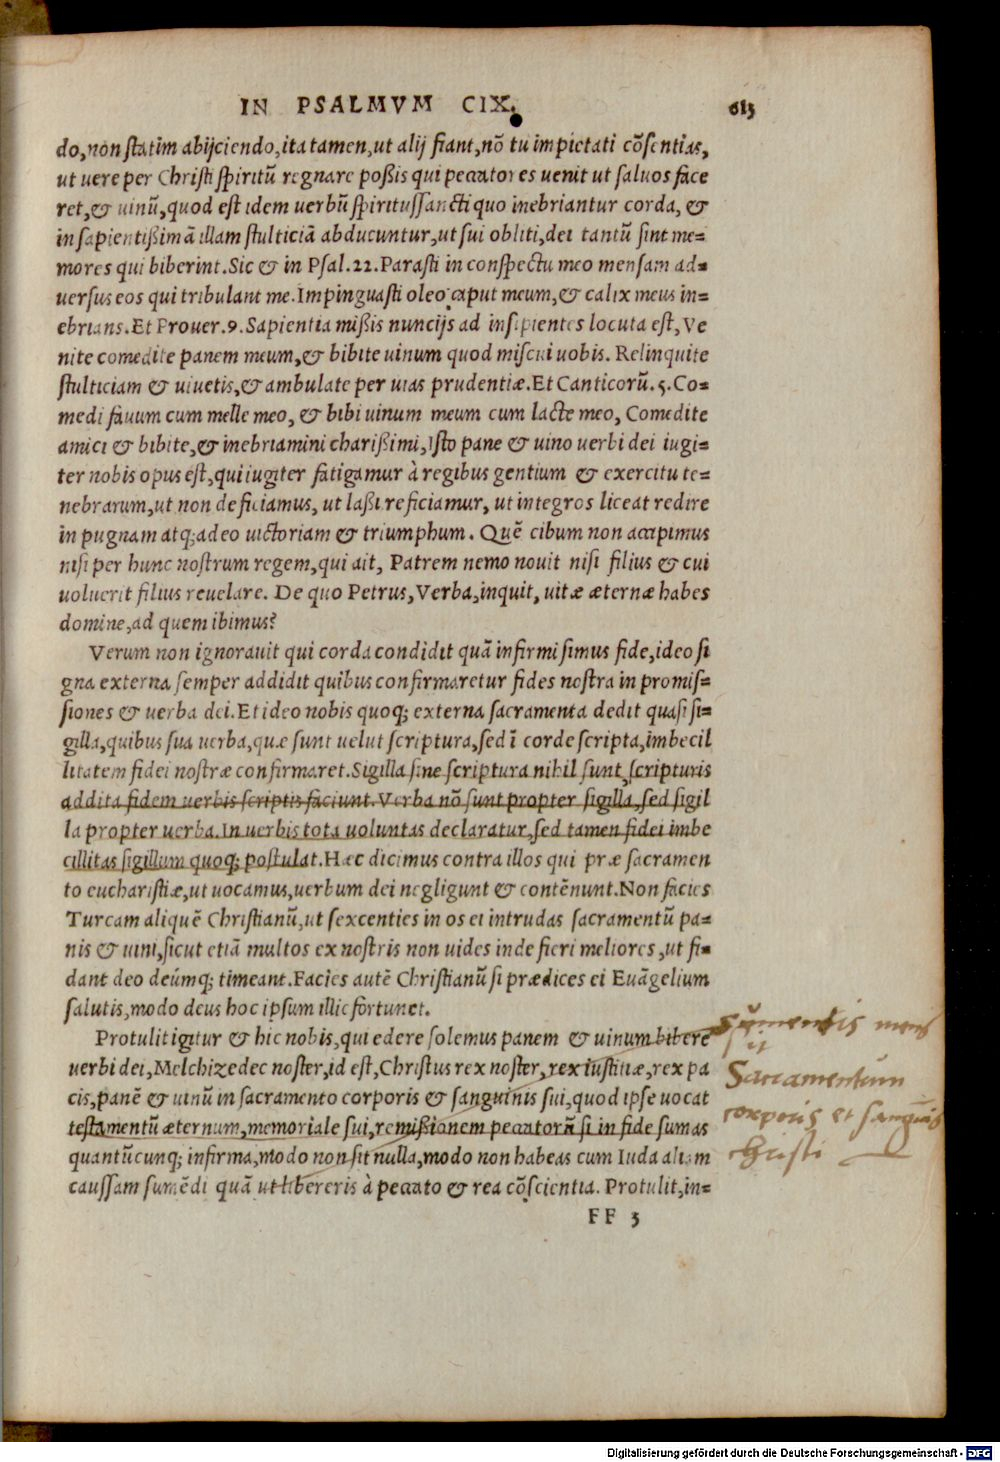 IN PSALMVM CIX. 613
do, non statim abijciendo, ita tamen, ut alij fiant, nõ tu impietati cõsentias,
ut uere per Christi spiritũ regnare poßis qui peccatores uenit ut saluos face
ret, & uinũ, quod est idem uerbũ spiritussancti quo inebriantur corda, &
in sapientißimã illam stulticiã abducuntur, ut sui obliti, dei tantũ sint me=
mores qui biberint. Sic & in Psal. 22. Parasti in conspectu meo mensam ad=
uersus eos qui tribulant me. Impinguasti oleo caput meum, & calix meus in=
ebrians. Et Prouer. 9. Sapientia mißis nuncijs ad insipientes locuta est, Ve
nite comedite panem meum, & bibite uinum quod miscui uobis. Relinquite
stulticiam & uiuetis, & ambulate per uias prudentiæ. Et Canticorũ. 5. Co=
medi fauum cum melle meo, & bibi uinum meum cum lacte meo, Comedite
amici & bibite, & inebriamini charißimi, Isto pane & uino uerbi dei iugi=
ter nobis opus est, qui iugiter fatigamur à regibus gentium & exercitu te=
nebrarum, ut non deficiamus, ut laßi reficiamur, ut integros liceat redire
in pugnam atq; adeo uictoriam & triumphum. Quẽ cibum non accipimus
nisi per hunc nostrum regem, qui ait, Patrem nemo nouit nisi filius & cui
uoluerit filius reuelare. De quo Petrus, Verba, inquit, uitæ æternæ habes
domine, ad quem ibimus?
Verum non ignorauit qui corda condidit quã infirmi simus fide, ideo si
gna externa semper addidit quibus confirmaretur fides nostra in promis=
siones & uerba dei. Et ideo nobis quoq; externa sacramenta dedit quasi si=
gilla, quibus sua uerba, quæ sunt uelut scriptura, sed ĩ corde scripta, imbecil
litatem fidei nostræ confirmaret. Sigilla sine scriptura nihil sunt, scripturis
addita fidem uerbis scriptis faciunt. Verba nõ sunt propter sigilla, sed sigil
la propter uerba. In uerbis tota uoluntas declaratur, sed tamen fidei imbe
cillitas sigillum quoq; postulat. Hæc dicimus contra illos qui præ sacramen
to eucharistiæ, ut uocamus, uerbum dei negligunt & contẽnunt. Non facies
Turcam aliquẽ Christianũ, ut sexcenties in os ei intrudas sacramentũ pa=
nis & uini, sicut etiã multos ex nostris non uides inde fieri meliores, ut fi=
dant deo deúmq; timeant. Facies autẽ Christianũ si prædices ei Euãgelium
salutis, modo deus hoc ipsum illic fortunet.
Protulit igitur & hic nobis, qui edere solemus panem & uinum bibere
uerbi dei, Melchizedec noster, id est, Christus rex noster, rex iustitiæ, rex pa
cis, panẽ & uinũ in sacramento corporis & sanguinis sui, quod ipse uocat
testamentũ æternum, memoriale sui, remißionem peccatorũ si in fide sumas
quantũcunq; infirma, modo non sit nulla, modo non habeas cum Iuda aliam
caussam sumẽdi quã ut libereris à peccato & rea cõscientia. Protulit, in=
FF 3
sumentis mens
sit
Sacramentum
corporis et sanguinis
christi
Digitalisierung gefördert durch die Deutsche Forschungsgemeinschaft - DFG